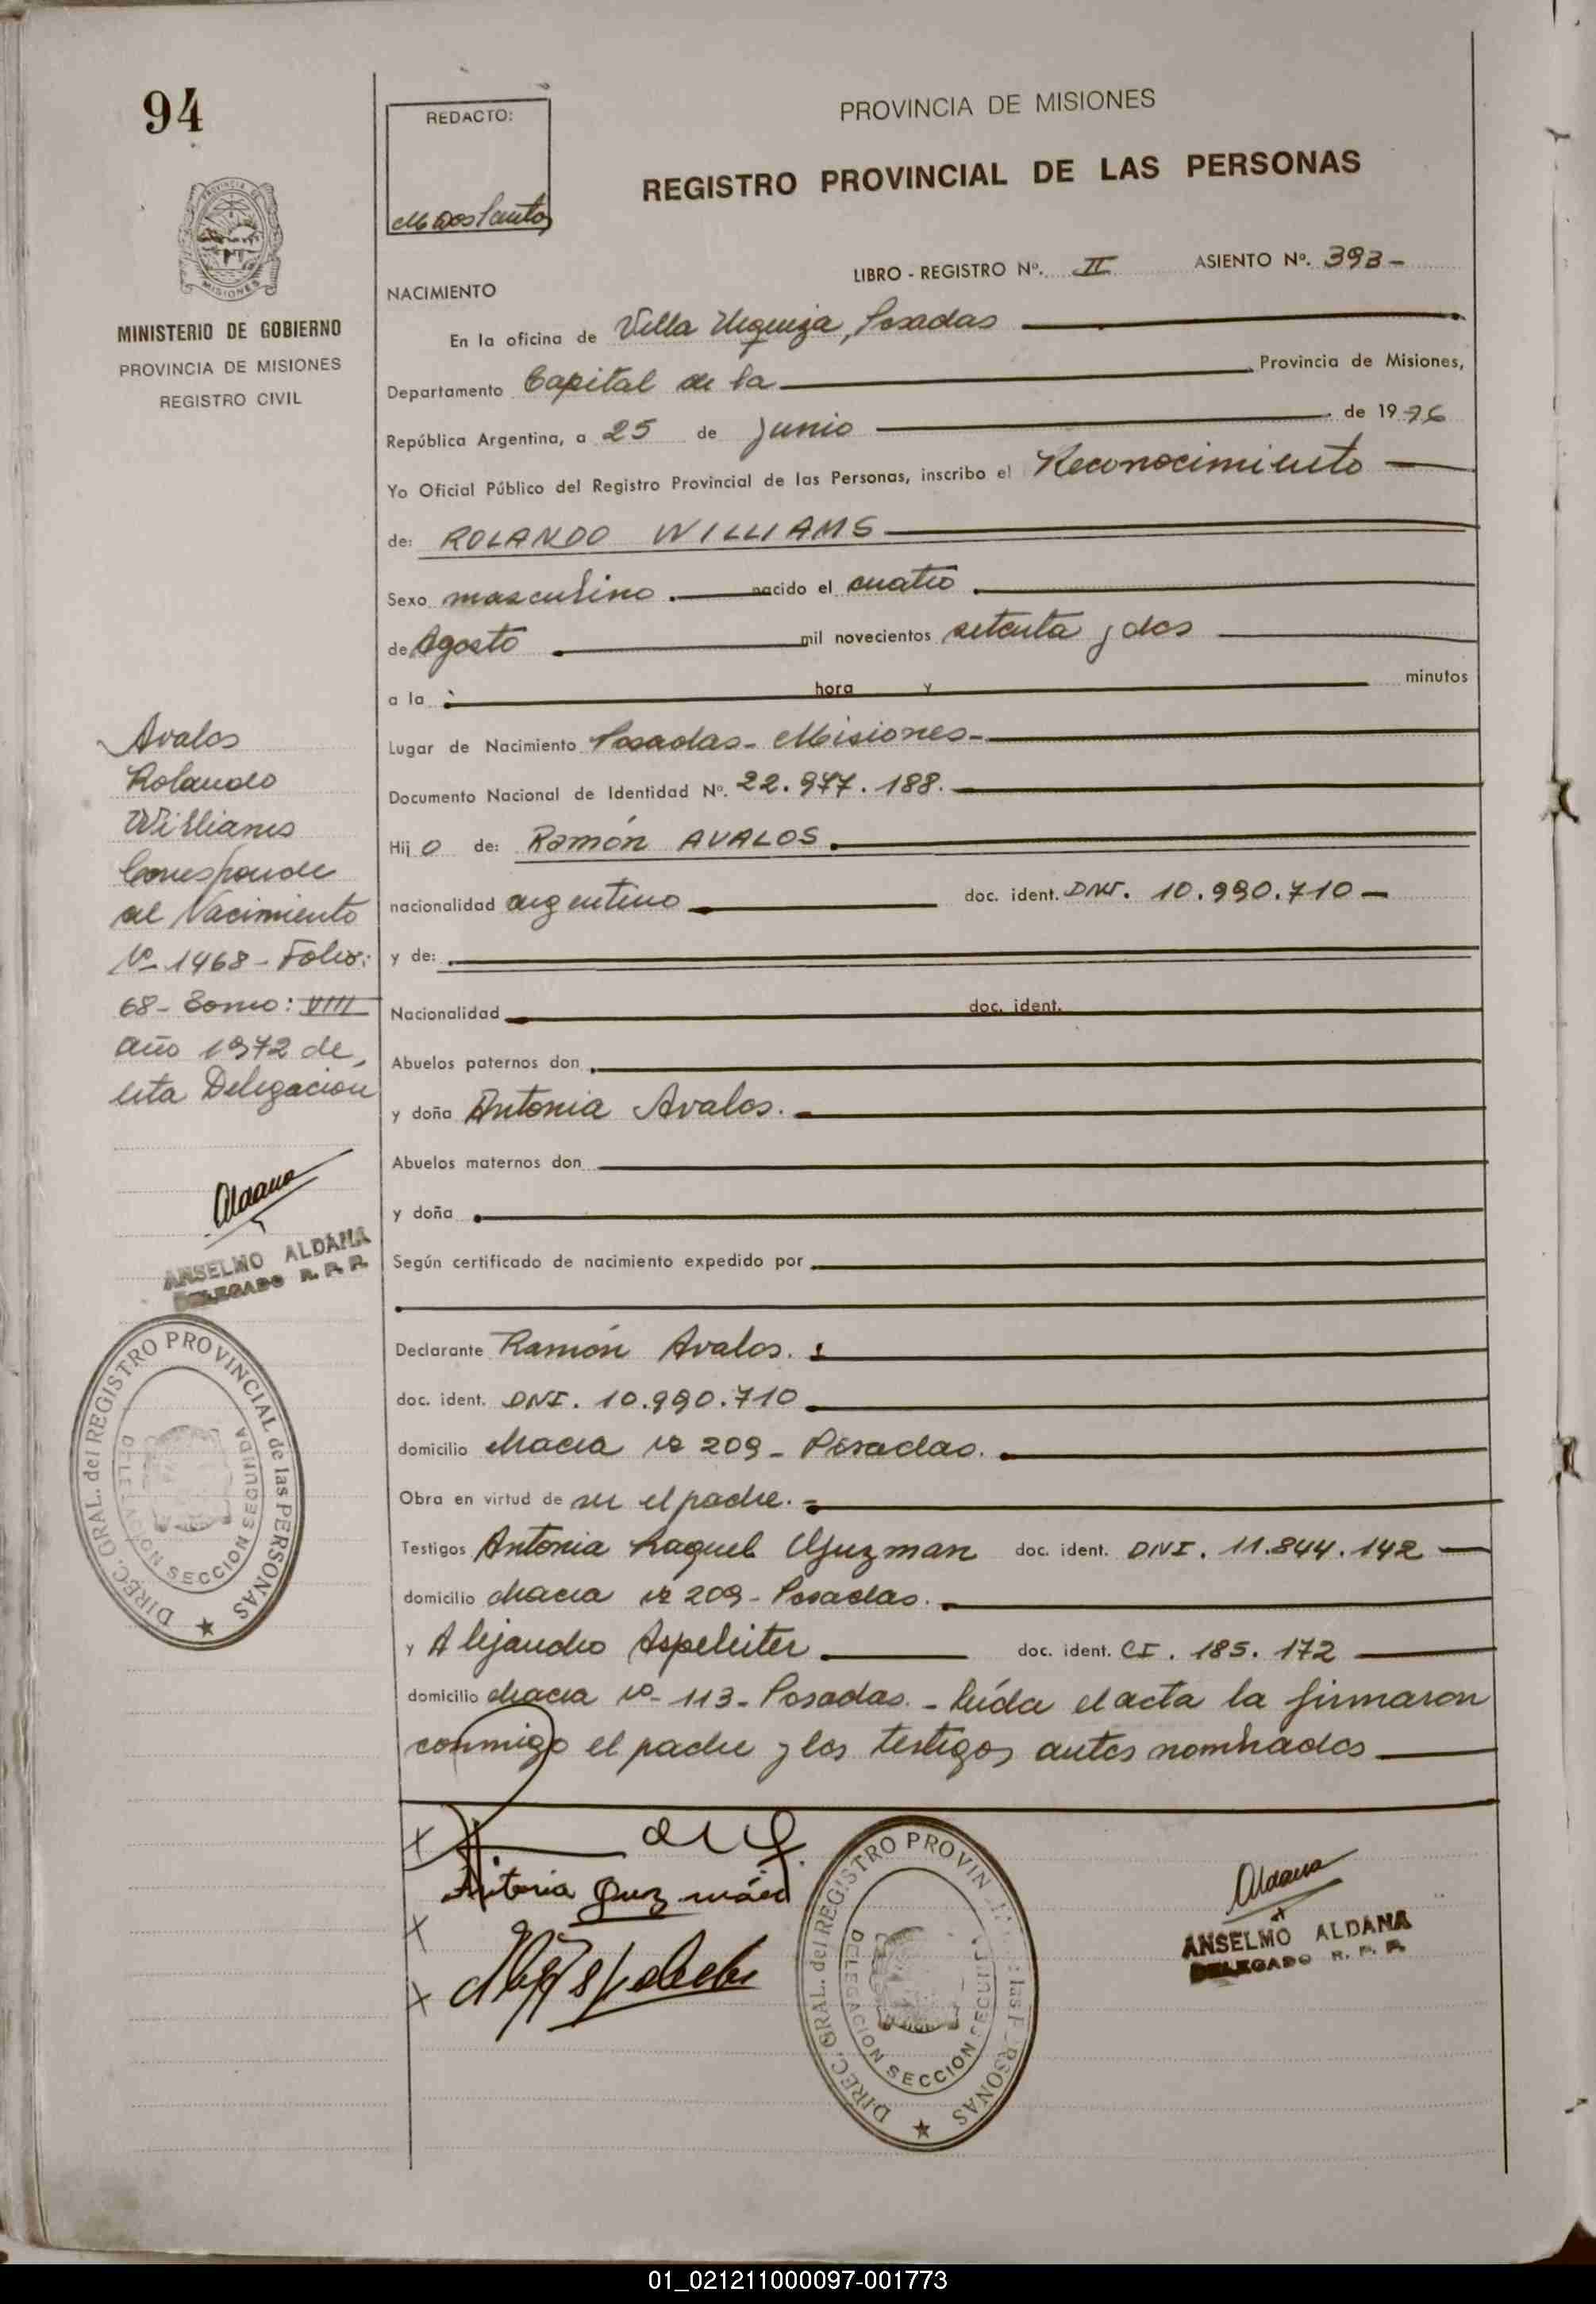 94
REDACTO:
M dos Santos
PROVINCIA DE MISIONES
REGISTRO PROVINCIAL DE LAS PERSONAS
MINISTERIO DE GOBIERNO
PROVINCIA DE MISIONES
REGISTRO CIVIL
LIBRO - REGISTRO Nº. II ASIENTO Nº. 393 -
NACIMIENTO
En la oficina de Villa Urquiza, Posadas
Departamento Capital de la Provincia de Misiones,
República Argentina, a 25 de junio de 1976
Yo Oficial Público del Registro Provincial de las Personas, inscribo el Reconocimiento
de: ROLANDO WILLIAMS
Sexo masculino. nacido el cuatro
de Agosto mil novecientos setenta y dos
a la hora y minutos
Lugar de Nacimiento Posadas - Misiones -
Documento Nacional de Identidad Nº. 22.977.188.
Hijo de: Ramón AVALOS.
nacionalidad argentino doc. ident. DNI. 10.990.710 -
y de:
Nacionalidad doc. ident.
Abuelos paternos don
y doña Antonia Avalos.
Abuelos maternos don
y doña
Según certificado de nacimiento expedido por
Declarante Ramón Avalos.
doc. ident. DNI. 10.990.710
domicilio chacra nº 209 - Posadas.
Obra en virtud de ser el padre. -
Testigos Antonia Raquel Guzman doc. ident. DNI. 11.844.142
domicilio chacra nº 209 - Posadas.
y Alejandro Aspeleiter doc. ident. CI. 185.172
domicilio chacra nº - 113 - Posadas. - Leída el acta la firmaron
conmigo el padre y los testigos antes nombrados
Avalos
Rolando
Williams
Corresponde
al Nacimiento
Nº 1468 - Folio:
68 - Tomo: VIII
año 1972 de
esta Delegación
Aldana
ANSELMO ALDANA
DELEGADO R. P. P.
DIREC. GRAL. del REGISTRO PROVINCIAL de las PERSONAS
DELEGACION SECCION SEGUNDA
Antonia Guzmán
DIREC. GRAL. del REGISTRO PROVINCIAL de las PERSONAS
DELEGACION SECCION SEGUNDA
Aldana
ANSELMO ALDANA
DELEGADO R. P. P.
01_021211000097-001773